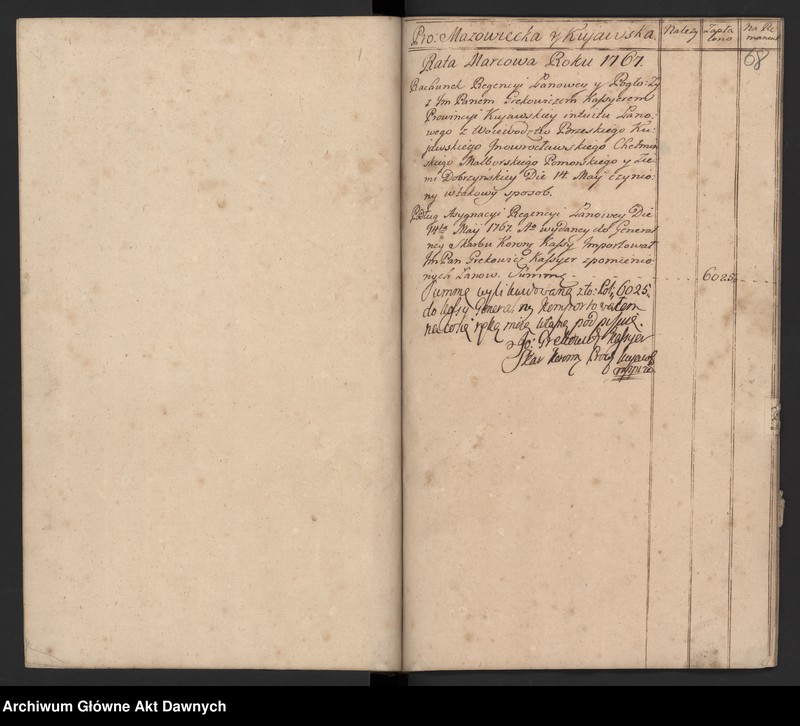 Pro: Mazowiecka y Kujawska. Należy Zapła cono Na Re manent
68
Rata Marcowa Roku 1767.
Rachunek Regencyi Łanowey y Pogło: Zy
z Jm Panem Grekowiczem Kassyerem
Prowincyi Kujawskiey intuitu Łano:
wego z Woiewodztw Brzeskiego Ku:
jawskiego Inowrocławskiego Chełmiń
skiego Malborskiego Pomorskiego y Zie:
mi Dobrzyńskiey Die 14. Maij czynio:
ny w takowy sposob.
Podług Asygnacyi Regencyi Łanowey Die
14ta Maij 1767. Ao wydaney do General
ney Skarbu Koronn Kassy Importował
Jm Pan Grekowicz Kassyer z pomienio:
nych Łanow. Summę 6025.
Summę wyli kwidowaną zło: Pol: 6025.
do Kassy Generalny komportowałem
na co się ręką moią własną pod pisuię.
Jo: Grekowicz Kassyer
Skar Koronn Prow Kujaws
mppria
Archiwum Główne Akt Dawnych